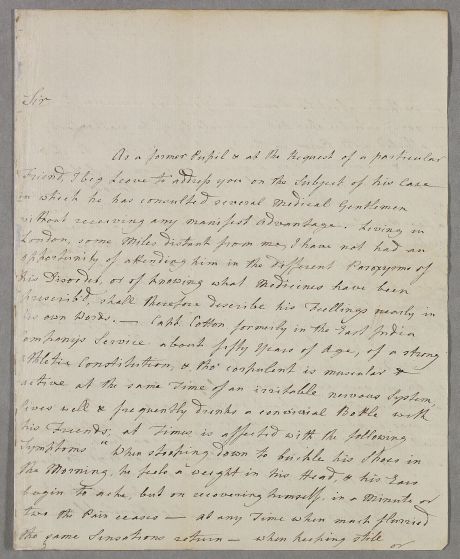 Sir
As a former Pupil & at the Request of a particular
Friend, I beg Leave to address you on the Subject of his Case
in which he has consulted several Medical Gentlemen
without receiving any manifest Advantage. Living in
London, some Miles distant from me, I have not had an
opportunity of attending him in the different Paroxysms of
his Disorder, or of knowing what Medicines have been
prescrib'd, shall therefore describe his Feelings nearly in
his own Words. — Capt. Cotton formerly in the East India
Company's Service about fifty Years of Age, of a strong
Athletic Constitution, & tho' corpulent is muscular &
active at the same Time of an irritable nervous System,
lives well & frequently drinks a convivial Bottle with
his Friends, at Times is affected with the following
Symptoms " When stooping down to buckle his Shoes in
the Morning, he feels a weight in his Head, & his Ears
begin to ache, but on recovering himself, in a Minute or
two the Pain ceases — at any Time when much flurried
the same Sensations return — when keeping still
or